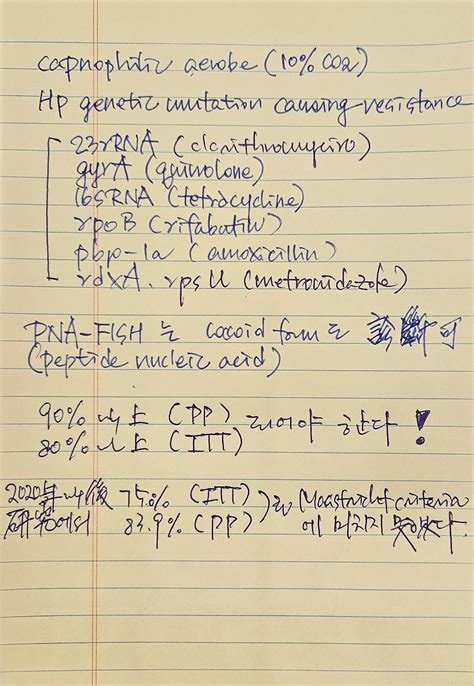 capnophilic aerobe (10% CO2)
Hp genetic mutation causing resistance
23rRNA (clarithromycin)
gyrA (quinolone)
16SRNA (tetracycline)
rpoB (rifabutin)
pbp-1a (amoxicillin)
rdxA. rps U (metronidazole)
PNA-FISH 는 cocoid form도 診斷可
(peptide nucleic acid)
90% 以上 (PP) 되어야 한다!
80% 以上 (ITT)
2020年以後 75.0% (ITT) 로 Maastricht criteria
研究에서 83.9% (PP) 에 미치지 못했다.